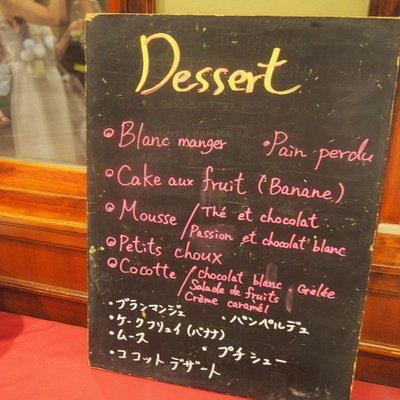 Dessert
Blanc manger ・Pain perdu
Cake aux fruit (Banane)
Mousse / Thé et chocolat
Passion et chocolat blanc
Petits choux
Cocotte / chocolat blanc ・ Gelée
Salade de fruits
Crème caramél
・ブランマンジェ ・パンペルデュ
・ケークフリュイ(バナナ)
・ムース ・プチシュー
・ココットデザート